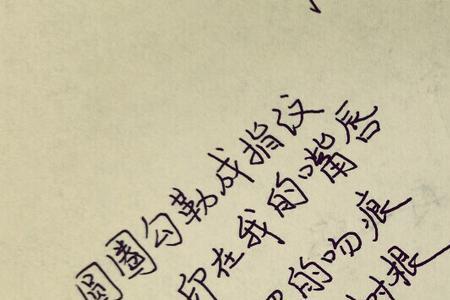 圆圈勾勒成指纹
印在我的嘴唇
的吻痕
树根